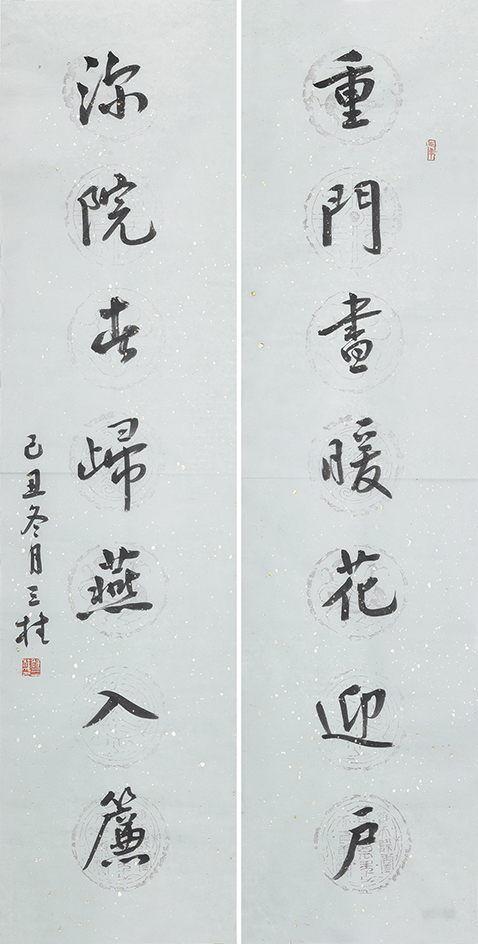 重門晝暖花迎户
深院春歸燕入簾
己丑冬月三柱